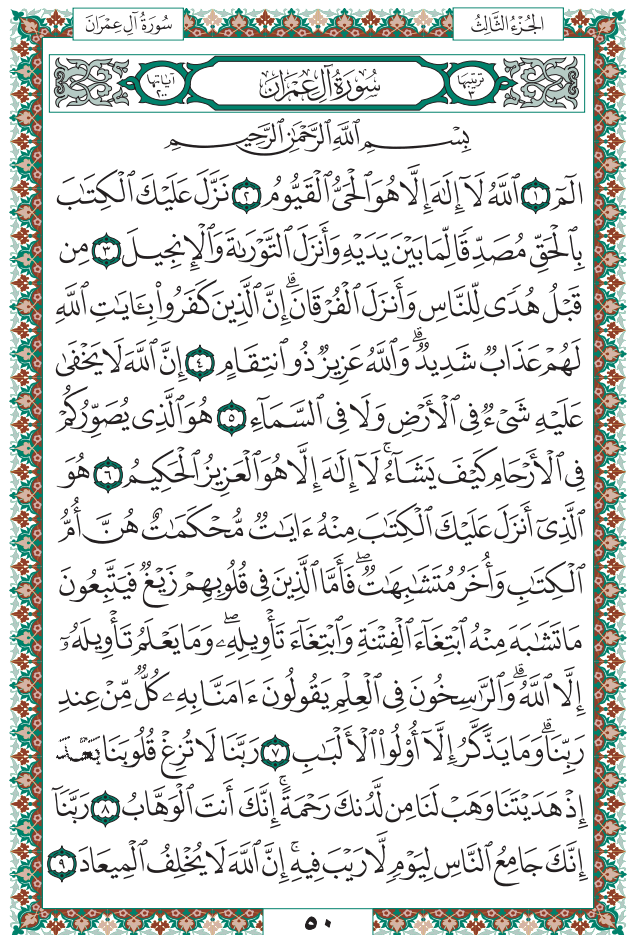 سُورَةُ آلِ عِمْرَانَ
الجُزْءُ الثَّالِثُ
تَرتيبُها ٣
سُورَةُ آلِ عِمْرَانَ
آيَاتُها ٢٠٠
بِسْمِ ٱللَّهِ ٱلرَّحْمَٰنِ ٱلرَّحِيمِ
الٓمٓ ١ ٱللَّهُ لَآ إِلَٰهَ إِلَّا هُوَ ٱلْحَىُّ ٱلْقَيُّومُ ٢ نَزَّلَ عَلَيْكَ ٱلْكِتَٰبَ
بِٱلْحَقِّ مُصَدِّقًا لِّمَا بَيْنَ يَدَيْهِ وَأَنزَلَ ٱلتَّوْرَىٰةَ وَٱلْإِنجِيلَ ٣ مِن
قَبْلُ هُدًى لِّلنَّاسِ وَأَنزَلَ ٱلْفُرْقَانَۗ إِنَّ ٱلَّذِينَ كَفَرُوا۟ بِـَٔايَٰتِ ٱللَّهِ
لَهُمْ عَذَابٌ شَدِيدٌۗ وَٱللَّهُ عَزِيزٌ ذُو ٱنتِقَامٍ ٤ إِنَّ ٱللَّهَ لَا يَخْفَىٰ
عَلَيْهِ شَىْءٌ فِى ٱلْأَرْضِ وَلَا فِى ٱلسَّمَآءِ ٥ هُوَ ٱلَّذِى يُصَوِّرُكُمْ
فِى ٱلْأَرْحَامِ كَيْفَ يَشَآءُۚ لَآ إِلَٰهَ إِلَّا هُوَ ٱلْعَزِيزُ ٱلْحَكِيمُ ٦ هُوَ
ٱلَّذِىٓ أَنزَلَ عَلَيْكَ ٱلْكِتَٰبَ مِنْهُ ءَايَٰتٌ مُّحْكَمَٰتٌ هُنَّ أُمُّ
ٱلْكِتَٰبِ وَأُخَرُ مُتَشَٰبِهَٰتٌۖ فَأَمَّا ٱلَّذِينَ فِى قُلُوبِهِمْ زَيْغٌ فَيَتَّبِعُونَ
مَا تَشَٰبَهَ مِنْهُ ٱبْتِغَآءَ ٱلْفِتْنَةِ وَٱبْتِغَآءَ تَأْوِيلِهِۦۖ وَمَا يَعْلَمُ تَأْوِيلَهُۥٓ
إِلَّا ٱللَّهُۗ وَٱلرَّٰسِخُونَ فِى ٱلْعِلْمِ يَقُولُونَ ءَامَنَّا بِهِۦ كُلٌّ مِّنْ عِندِ
رَبِّنَاۗ وَمَا يَذَّكَّرُ إِلَّآ أُو۟لُوا۟ ٱلْأَلْبَٰبِ ٧ رَبَّنَا لَا تُزِغْ قُلُوبَنَا
إِذْ هَدَيْتَنَا وَهَبْ لَنَا مِن لَّدُنكَ رَحْمَةًۚ إِنَّكَ أَنتَ ٱلْوَهَّابُ ٨ رَبَّنَآ
إِنَّكَ جَامِعُ ٱلنَّاسِ لِيَوْمٍ لَّا رَيْبَ فِيهِۚ إِنَّ ٱللَّهَ لَا يُخْلِفُ ٱلْمِيعَادَ ٩
٥٠